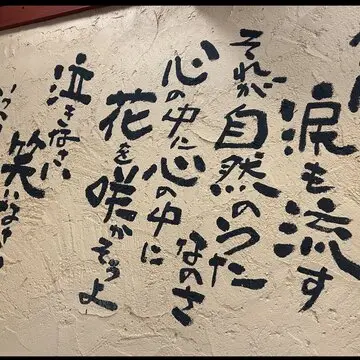 涙も流す
それが
自然のうた
なのさ
心の中に心の中に
花を咲かそうよ
泣きなさい
笑いなさい